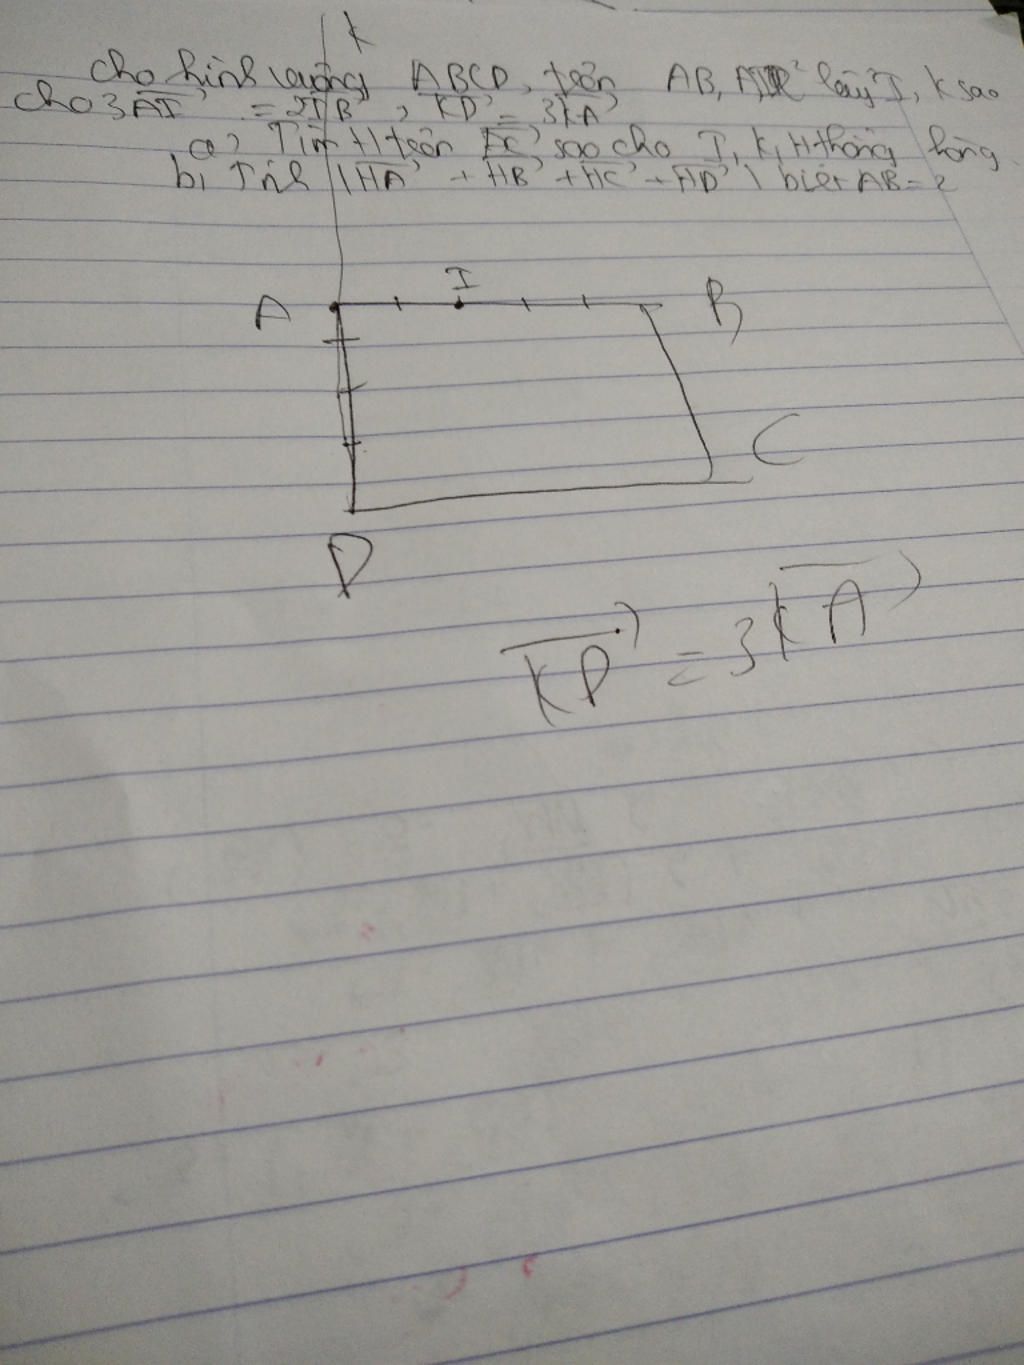 K
Cho hình vuông ABCD, trên AB, AD lấy I, K sao
cho 3AI = 2IB, KD = 3KA
a, Tìm H trên BC sao cho I, K, H thẳng hàng
b, Tính |HA + HB + HC + HD| biết AB = 2
I
A B
C
D
KD = 3KA